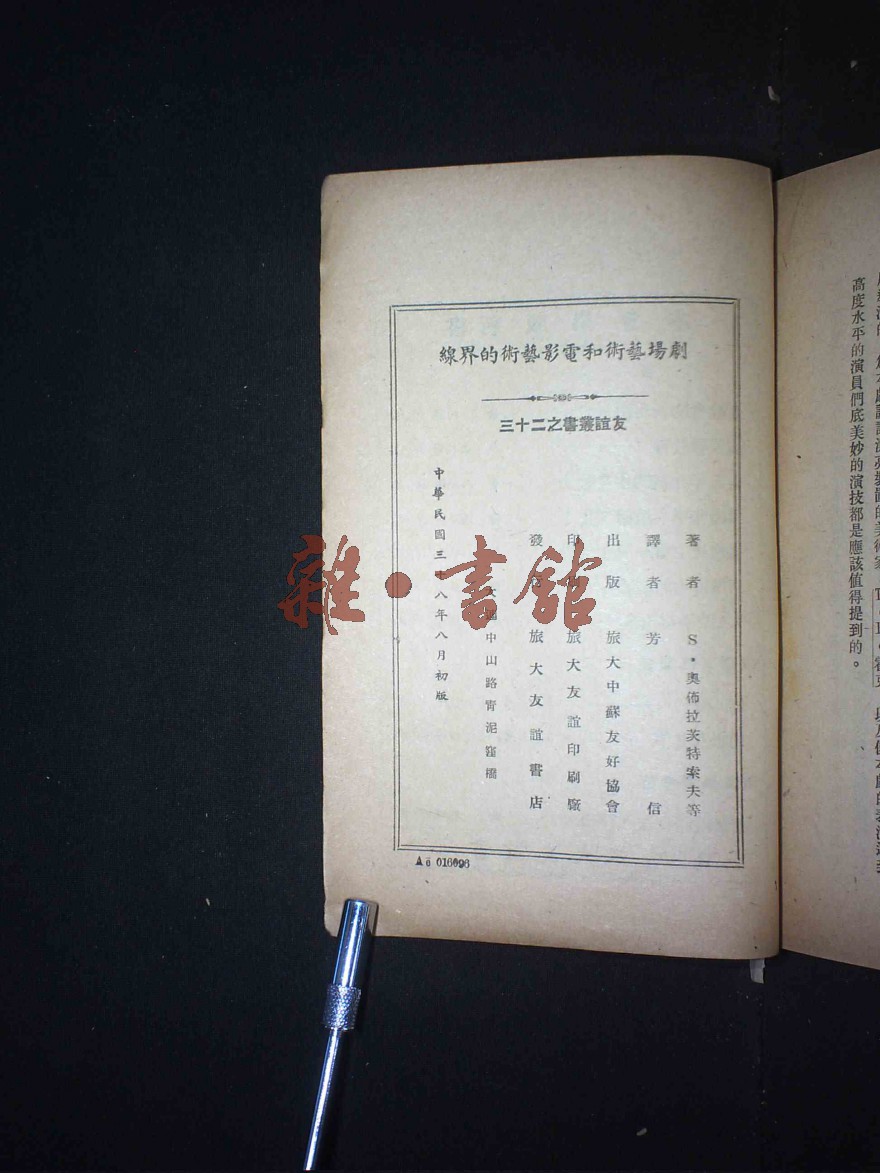 劇場藝術和電影藝術的界線
友誼叢書之二十三
著者 S·奧佈拉茨特索夫等
譯者 芳信
出版 旅大中蘇友好協會
印刷 旅大友誼印刷廠
發行 旅大友誼書店
中山路青泥窪橋
中華民國三十八年八月初版
Aё 016096
雜·書館
高度水平的演員們底美妙的演技都是應該值得提到的。